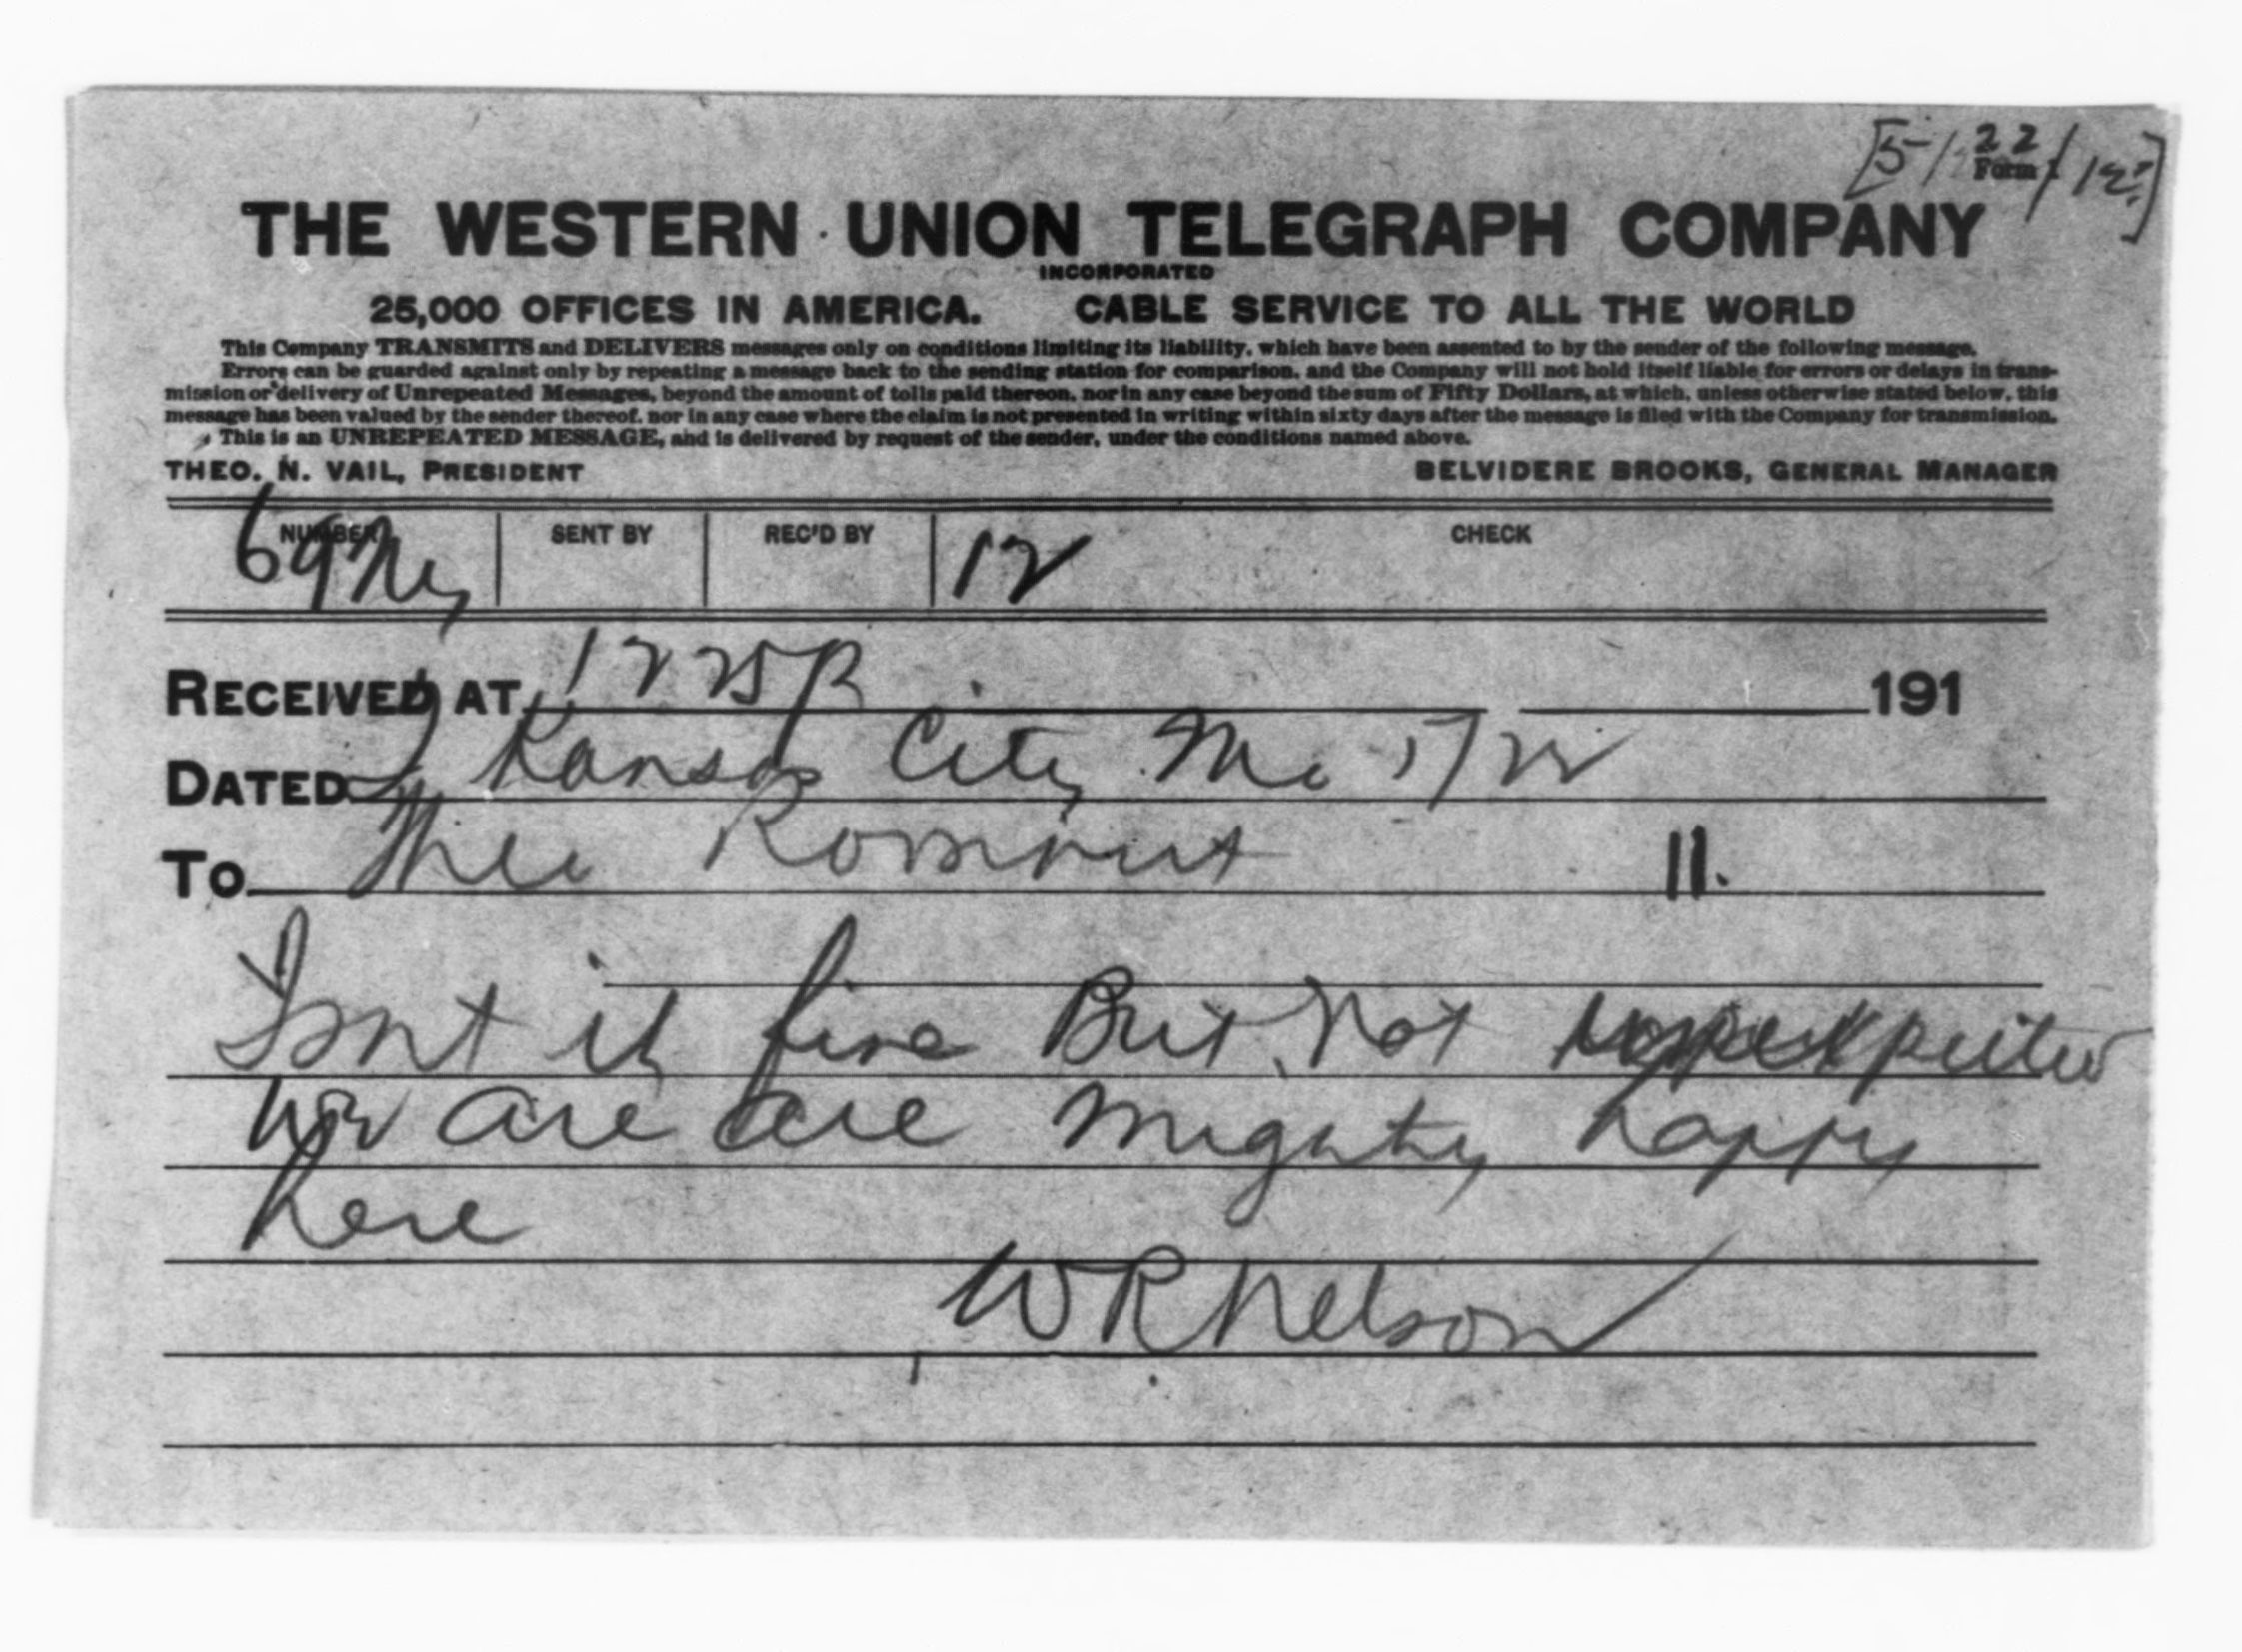 [5/22/12?]
Form 1
THE WESTERN UNION TELEGRAPH COMPANY
INCORPORATED
25,000 OFFICES IN AMERICA. CABLE SERVICE TO ALL THE WORLD
This Company TRANSMITS and DELIVERS messages only on conditions limiting its liability, which have been assented to by the sender of the following message.
Errors can be guarded against only by repeating a message back to the sending station for comparison, and the Company will not hold itself liable for errors or delays in trans-
mission or delivery of Unrepeated Messages, beyond the amount of tolls paid thereon, nor in any case beyond the sum of Fifty Dollars, at which, unless otherwise stated below, this
message has been valued by the sender thereof, nor in any case where the claim is not presented in writing within sixty days after the message is filed with the Company for transmission.
This is an UNREPEATED MESSAGE, and is delivered by request of the sender, under the conditions named above.
THEO. N. VAIL, PRESIDENT BELVIDERE BROOKS, GENERAL MANAGER
NUMBER SENT BY REC'D BY CHECK
69Ny 12
RECEIVED AT 1225P 191
DATED Kansas City Mo 5/22
To Theo Roosevelt 11.
Isnt it fine But not unexpected
We are are mighty happy
here
WR Nelson